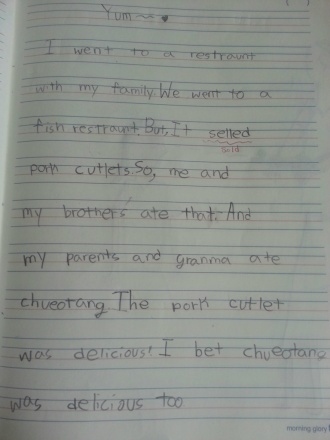 Yum~~♥
I went to a restraunt
with my family. We went to a
fish restraunt. But, It selled
sold
pork cutlets. So, me and
my brothers ate that. And
my parents and granma ate
chueotang. The pork cutlet
was delicious! I bet chueotang
was delicious too
morning glory